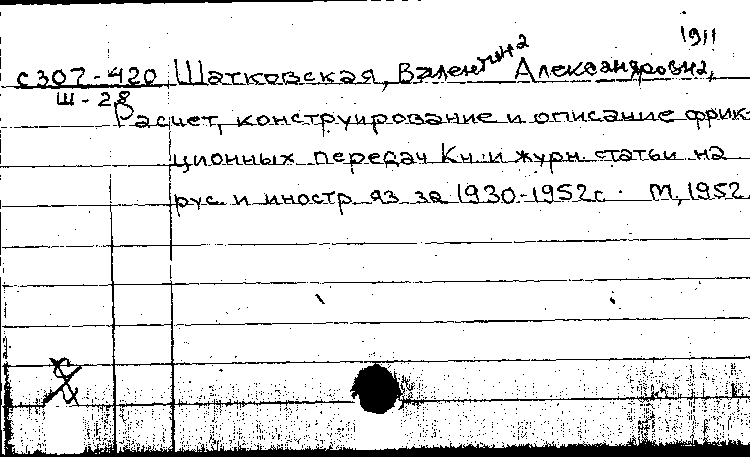 1911
с307-420 Шатковская, Валентина Александровна,
Ш-28
Расчет, конструирование и описание фрик-
ционных передач Кн. и журн. статьи на
рус. и иностр. яз за 1930-1952г. М, 1952